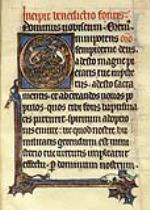 Incipit benedictio fontis
Dominus vobiscum. Orem
omnipotens
sempiterne deus.
adesto magne pi
etatis tue myste
riis. adesto sacra
mentis. et ad creandos novos po
pulos. quos tibi fons baptisma
tis parturit. spiritum adoptio
nis emitte. ut quod nostre hu
militatis gerendum est minis
terio. tue virtutis impleatur
effectu. p dominum nostrum.